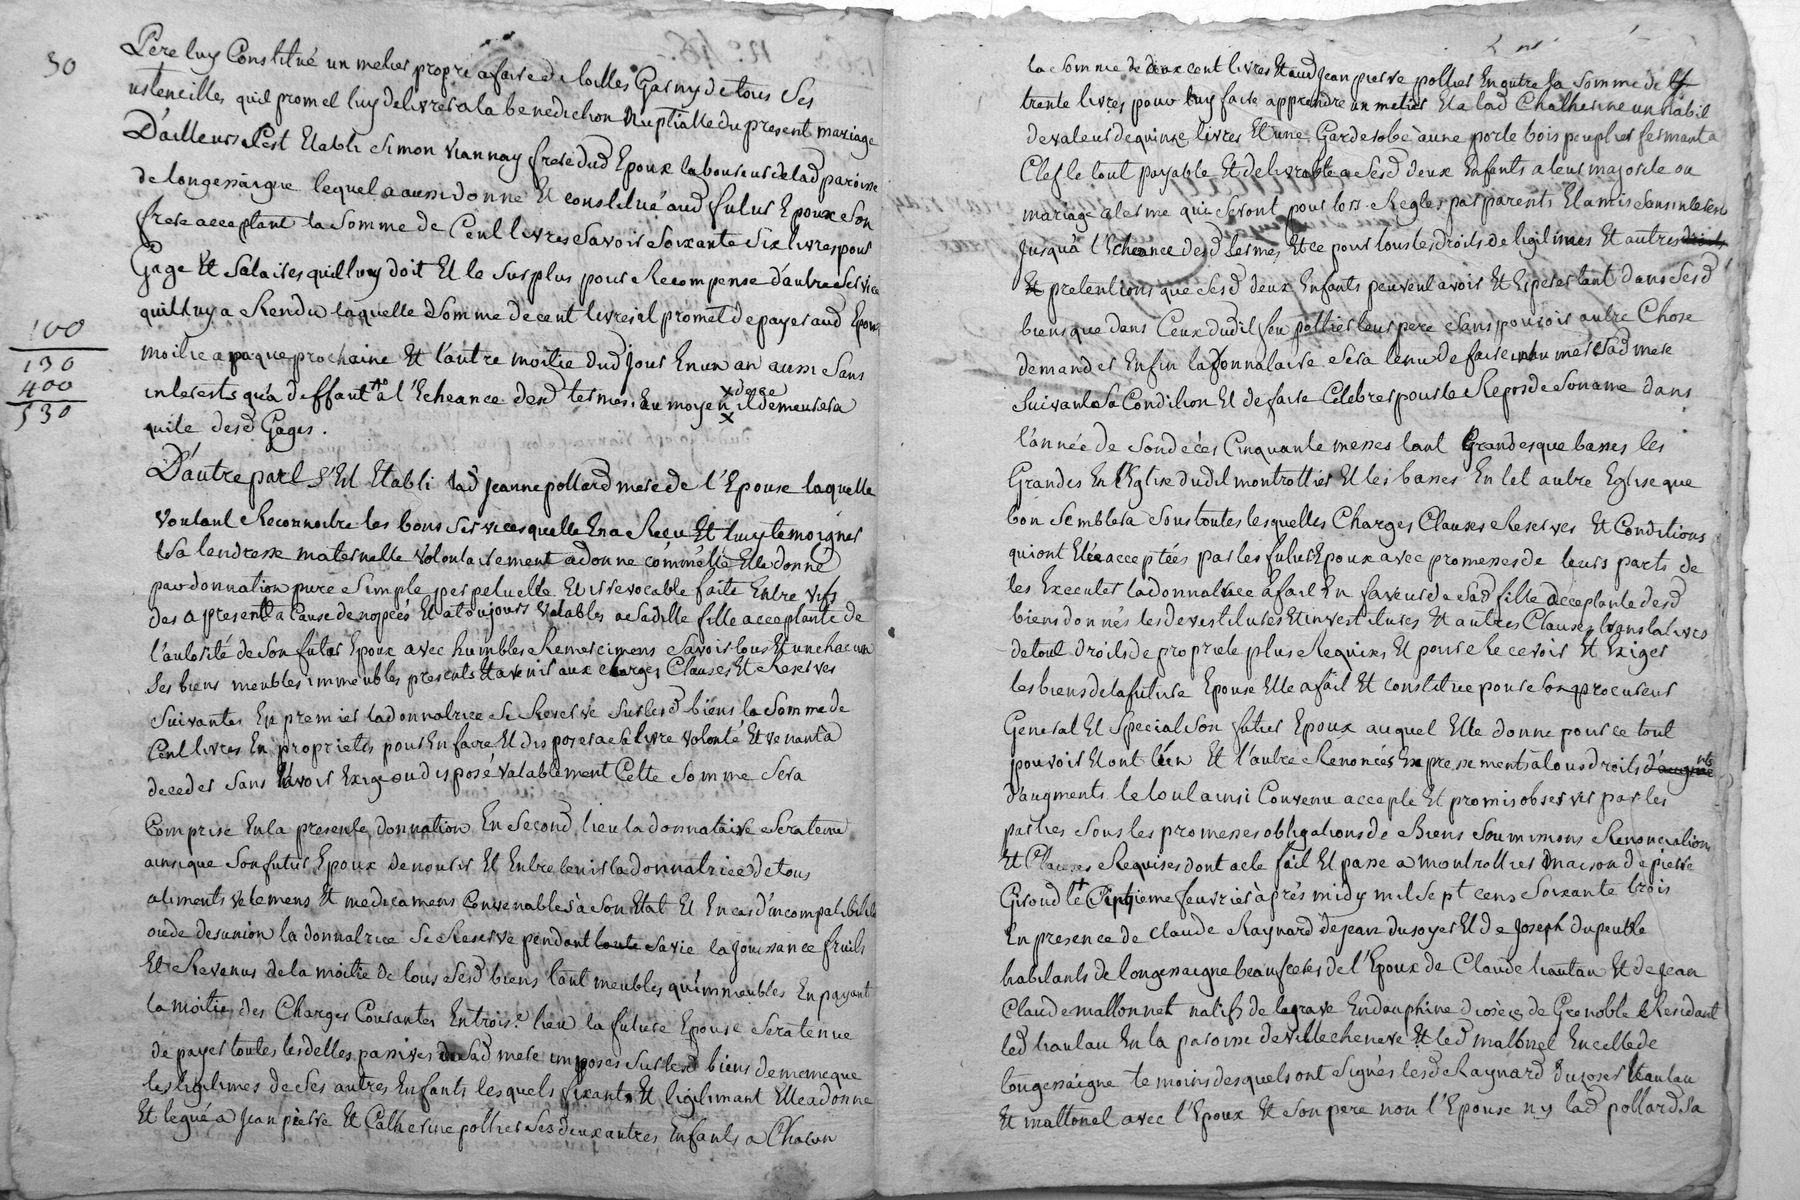 30
Pere luy Constitué un metier propre a faire de toilles Garny de tous Ses
ustencilles quil promet luy delivrer a la benediction Nuptialle du present mariage
D'ailleurs s'est Etabli Simon viannay frere dud Epoux laboureur de lad paroisse
de longessaigne lequel a aussi donné Et constitué aud futur Epoux Son
frere acceptant la Somme de Cent livres Savoir Soixante Six livres pour
Gage Et Salaires quil luy doit Et le Surplus pour Recompense d'autre Service
quil luy a Rendu laquelle Somme de cent livres il promet de payer aud Epoux
100
130
400
530
moitié a paque prochaine Et l'autre moitie dud Jour En un an aussi Sans
interests qu'a deffaut a l'Echeance desd termes. Au moyen il demeurera
quite desd Gages.
D'autre part S'Est Etabli lad Jeanne pollard mere de l'Epouse laquelle
voulant Reconnoitre les bons Services quelle En a Reçu Et luy temoigner
Sa tendresse maternelle volontairement a donné comme Elle donne
par donnation pure Simple perpetuelle Et irrevocable faite Entre vifs
des a present a Cause de nopces Et a toujours valables a Sadite fille acceptante de
l'autorité de Son futur Epoux avec humbles Remercimens Savoir tous Et un chacun
Ses biens meubles immeubles presents Et avenir aux charges Clauses Et Reserves
Suivantes En premier la donnatrice Se Reserve Sur lesd biens la Somme de
Cent livres En proprieté pour En faire Et disposer a Sa livre volonté Et venant a
deceder Sans l'avoir Exigé ou disposé valablement Cette Somme Sera
Comprise En la presente donnation En Second lieu la donnataire Sera tenue
ainsi que Son futur Epoux de nourir Et Entretenir la donnatrice de tous
aliments vetemens Et medicamens Convenables a Son Etat Et En cas d'incompatibilité
ou de desunion la donnatrice Se Reserve pendant toute Sa vie la Jouissance fruits
Et Revenus de la moitie de tous Sesd biens tant meubles qu'immeubles En payant
la moitie des Charges Courantes En trois.e lieu la future Epouse Sera tenue
de payer toutes les dettes passives de Sad mere imposés Sur lesd biens de meme que
les legitimes de Ses autres Enfants lesquels fixant Et legitimant Elle a donné
Et legué a Jean pierre Et Catherine pottier Ses deux autres Enfants a Chacun
la Somme de deux cent livres Et aud Jean pierre pottier En outre la Somme de
trente livres pour luy faire apprendre un metier Et a lad Chatherine un habit
de valeur de quinze livres Et une Garderobe a une porte bois peuplier fermant a
Clef le tout payable Et delivrable a Sesd deux Enfants a leur majorite ou
mariage a terme qui Seront pour lors Regles par parents Et amis Sans interets
Jusqu'a l'Echeance desd termes Et ce pour tous les droits de legitimes Et autres droits
Et pretentions que Sesd deux Enfants peuvent avoir Et Esperer tant dans Sesd
biens que dans Ceux dudit feu pottier leur pere Sans pouvoir autre Chose
demander Enfin la donnataire Sera tenu de faire inhumer Sad mere
Suivant Sa Condition Et de faire Celebrer pour le Repos de Son ame dans
l'année de Son deces Cinquante messes tant Grandes que basses les
Grandes En l'Eglise dudit montrottier Et les basses En tel autre Eglise que
bon Semblera Sous toutes lesquelles Charges Clauses Reserves Et Conditions
qui ont Etée acceptées par les futurs Epoux avec promesses de leurs parts de
les Executer la donnatrice a fait En faveur de Sad fille acceptante desd
biens donnés les devestitures Et investitures Et autres Clauses translatives
de tout droits de propriete plus Requises Et pour Recevoir Et Exiger
les biens de la future Epouse Elle a fait Et constitue pour Son procureur
General Et Special Son futur Epoux auquel Elle donne pour ce tout
pouvoir Et ont l'un Et l'autre Renoncés Expressement a tous droits
d'augments le tout ainsi Convenu accepté Et promis observer par les
parties Sous les promesses obligations de Biens Soumissions Renonciations
Et Clauses Requises dont acte fait Et passé a montrottier maison de pierre
Giroud le Septieme feuvrier après midy mil Sept cens Soixante trois
En presence de Claude Raynard de Jean dusoyer Et de Joseph dupeuble
habitants de longessaigne beaufreres de l'Epoux de Claude hautau Et de Jean
Claude mattonnet natifs de lagrave En dauphine diocèse de Grenoble Residant
led hautau En la paroisse de villecheneve Et led mattonet En celle de
longessaigne temoins desquels ont Signés lesd Raynard dusoyer hautau
Et mattonet avec l'Epoux Et Son pere non l'Epouse ny lad pollard Sa